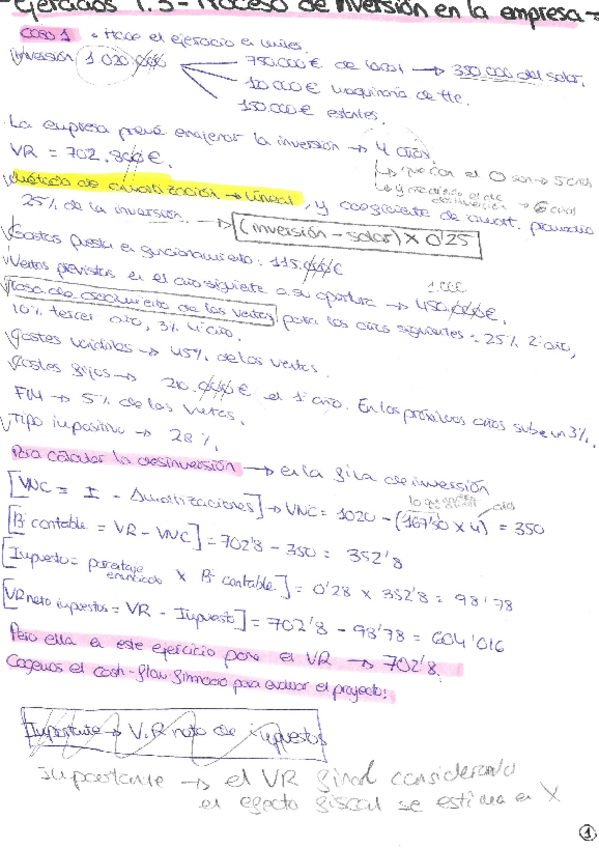 - Ejercicios 1.3 - Proceso de Inversión en la empresa -
CASO 1 • Hace el ejercicio en miles.
Inversión 1.020.000 750.000 € de local → 350.000 del solar.
120.000 € maquinaria de tte.
150.000 € estantes.
La empresa prevé enajenar la inversión → 4 años.
VR = 702.800 €.
Método de amortización → lineal, y coeficiente de amort. promedio
25% de la inversión. → (inversión - solar) x 0'25
Gastos puesta en funcionamiento: 115.000 €
Ventas previstas en el año siguiente a su apertura → 450.000 €.
1.000
Tasa de crecimiento de las ventas para los años siguientes = 25% 2º año,
10% tercer año, 3% 4º año.
Costes variables → 45% de las ventas.
Costes fijos → 210.000 € el 1º año. En los próximos años sube un 3%.
FM → 5% de las ventas.
Tipo impositivo → 28%.
Para calcular la desinversión → en la fila de inversión
[VNC = I - Amortizaciones] → VNC = 1020 - (167'50 x 4) = 350
años
[Bº contable = VR - VNC] = 702'8 - 350 = 352'8
[Impuesto = porcentaje x Bº contable] = 0'28 x 352'8 = 98'78
[VR neto impuestos = VR - Impuesto] = 702'8 - 98'78 = 604'016
Pero ella en este ejercicio pone el VR → 702'8.
Cogemos el cash-flow financiero para evaluar el proyecto!
Importante → V.R neto de impuestos
Importante → el VR final considerando
el efecto fiscal se estima en X
1